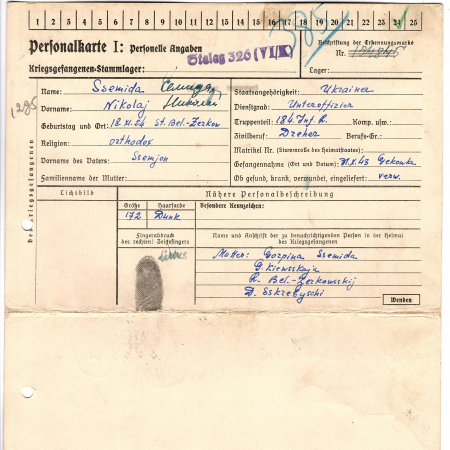 1 2 3 4 5 6 7 8 9 10 11 12 13 14 15 16 17 18 19 20 21 22 23 24 25
385
Personalkarte I: Personelle Angaben
Stalag 326 (VI/K)
Beschriftung der Erkennungsmarke
Nr.
Kriegsgefangenen-Stammlager:
Lager:
des Kriegsgefangenen
Name: Ssemida
Staatsangehörigkeit: Ukrainer
Vorname: Nikolaj
Dienstgrad: Unteroffizier
Truppenteil: 184. Inf. R. Komp. usw.:
Geburtstag und Ort: 18.XI.24 St. Bel.-Zerkow
Zivilberuf: Dreher Berufs-Gr.:
Religion: orthodox
Matrikel Nr. (Stammrolle des Heimatstaates):
Vorname des Vaters: Ssemjon
Gefangennahme (Ort und Datum):
Familienname der Mutter:
Ob gesund, krank, verwundet, eingeliefert: verw.
Lichtbild
Nähere Personalbeschreibung
Größe Haarfarbe
Besondere Kennzeichen:
172 Dunk.
Fingerabdruck
des rechten! Zeigefingers
Name und Anschrift der zu benachrichtigenden Person in der Heimat
des Kriegsgefangenen
Mutter: Gorpina Ssemida
G. Kiewsskaja
R. Bel.-Zerkowsskij
D. Sskrebyschi
Wenden